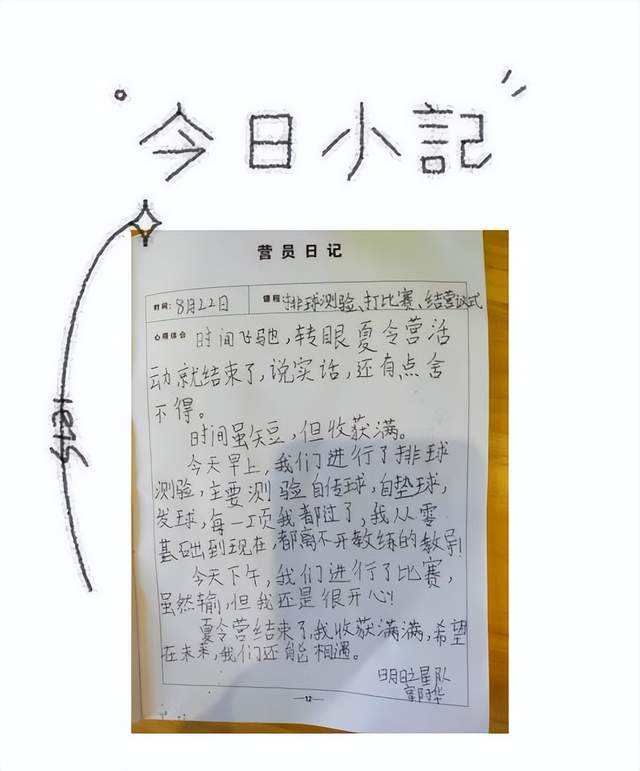 今日小記
营员日记
时间：8月22日 课程：排球测验、打比赛、结营议式
心得体会 时间飞驰，转眼夏令营活
动就结束了，说实话，还有点舍
不得。
时间虽短，但收获满。
今天早上，我们进行了排球
测验，主要测验自传球，自垫球，
发球，每一项我都过了，我从零
基础到现在，都离不开教练的教导！
今天下午，我们进行了比赛，
虽然输，但我还是很开心！
夏令营结束了，我收获满满，希望
在未来，我们还能相遇。
明日之星队
—12—